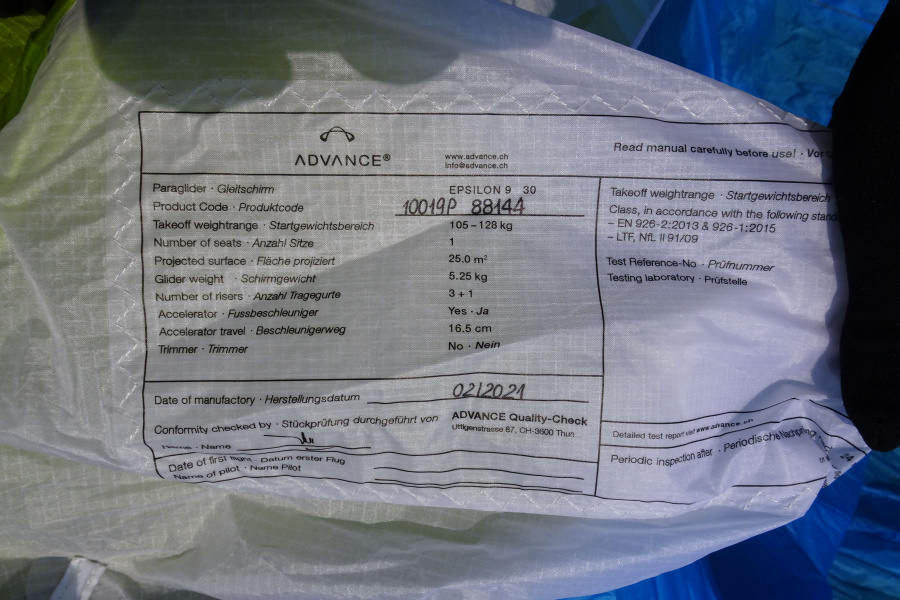 ADVANCE®
www.advance.ch
info@advance.ch
Read manual carefully before use! ·
Paraglider · Gleitschirm EPSILON 9 30
Product Code · Produktcode 10019P 88144
Takeoff weightrange · Startgewichtsbereich 105–128 kg
Number of seats · Anzahl Sitze 1
Projected surface · Fläche projiziert 25.0 m²
Glider weight · Schirmgewicht 5.25 kg
Number of risers · Anzahl Tragegurte 3 + 1
Accelerator · Fussbeschleuniger Yes · Ja
Accelerator travel · Beschleunigerweg 16.5 cm
Trimmer · Trimmer No · Nein
Date of manufactory · Herstellungsdatum 02/2021
Conformity checked by · Stückprüfung durchgeführt von ADVANCE Quality-Check
Uttigenstrasse 87, CH-3600 Thun
Name · Name
Date of first flight · Datum erster Flug
Name of pilot · Name Pilot
Takeoff weightrange · Startgewichtsbereich
Class, in accordance with the following
– EN 926-2:2013 & 926-1:2015
– LTF, NfL II 91/09
Test Reference-No · Prüfnummer
Testing laboratory · Prüfstelle
Detailed test report visit www.advance.ch
Periodic inspection after · Periodische